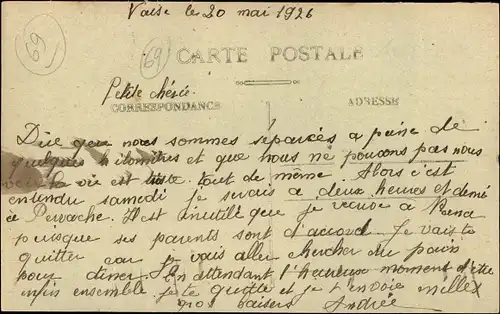 Vaise le 20 mai 1926
69
69
CARTE POSTALE
Petite chérie.
CORRESPONDANCE
ADRESSE
Dire que nous sommes séparés a peine de
quelques kilomètres et que nous ne pouvons pas nous
voir la vie est triste tout de même. Alors c'est
entendu samedi je serais a deux heures et demie
à Perrache. Il est inutile que je
puisque ses parents sont d'accord. Je vais te
quitter car je vais aller chercher du pain
pour diner. En attendant l'heureuse moment d'être
enfin ensemble je te quitte et je t'envoie milles
gros baisers Andrée